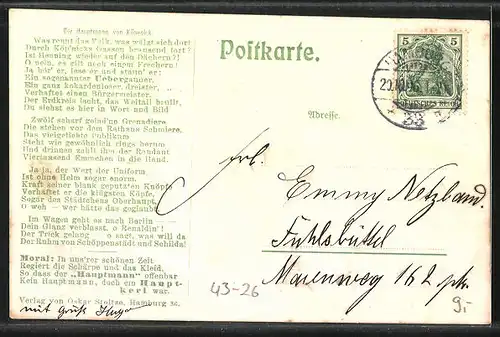 Der Hauptmann von Köpenick
Was rennt das Volk, was wälzt sich dort
Durch Köp'nicks Gassen brausend fort?
Ist Henning wieder auf den Dächern?!
O nein, es gilt noch einem Frechern!
Ja hör' er, lese er und staun' er:
Ein sogenannter Uebergauner,
Ein ganz kokardenloser, dreister,
Verhaftet einen Bürgermeister.
Der Erdkreis lacht, das Weltall brüllt,
Du siehst es hier in Wort und Bild
Zwölf scharf gelad'ne Grenadiere
Die stehen vor dem Rathaus Schmiere.
Das vielgeliebte Publikum
Steht wie gewöhnlich rings herum
Und drinnen zahlt ihm der Rendant
Viertausend Emmchen in die Hand.
Ja ja, der Wert der Uniform
Ist ohne Helm sogar enorm.
Kraft seiner blank geputzten Knöpfe
Verhaftet er die klügsten Köpfe,
Sogar des Städtchens Oberhaupt,
O weh — wer hätte das geglaubt
Im Wagen geht es nach Berlin
Dein Glanz verblasst, o Renaldin!
Der Trick gelang o sagt, was will da
Der Ruhm von Schüppenstädt und Schilda!
Moral: In uns'rer schönen Zeit
Regiert die Schärpe und das Kleid,
So dass der "Hauptmann" offenbar
Kein Hauptmann, doch ein Haupt-
kerl war.
Verlag von Oskar Stoltze, Hamburg 36.
mit Gruß
Postkarte.
Adresse.
5 5
DEUTSCHES REICH
Frl.
Emmy Netzband.
Fuhlsbüttel
Maienweg 162 ptr.
43-26
9,-